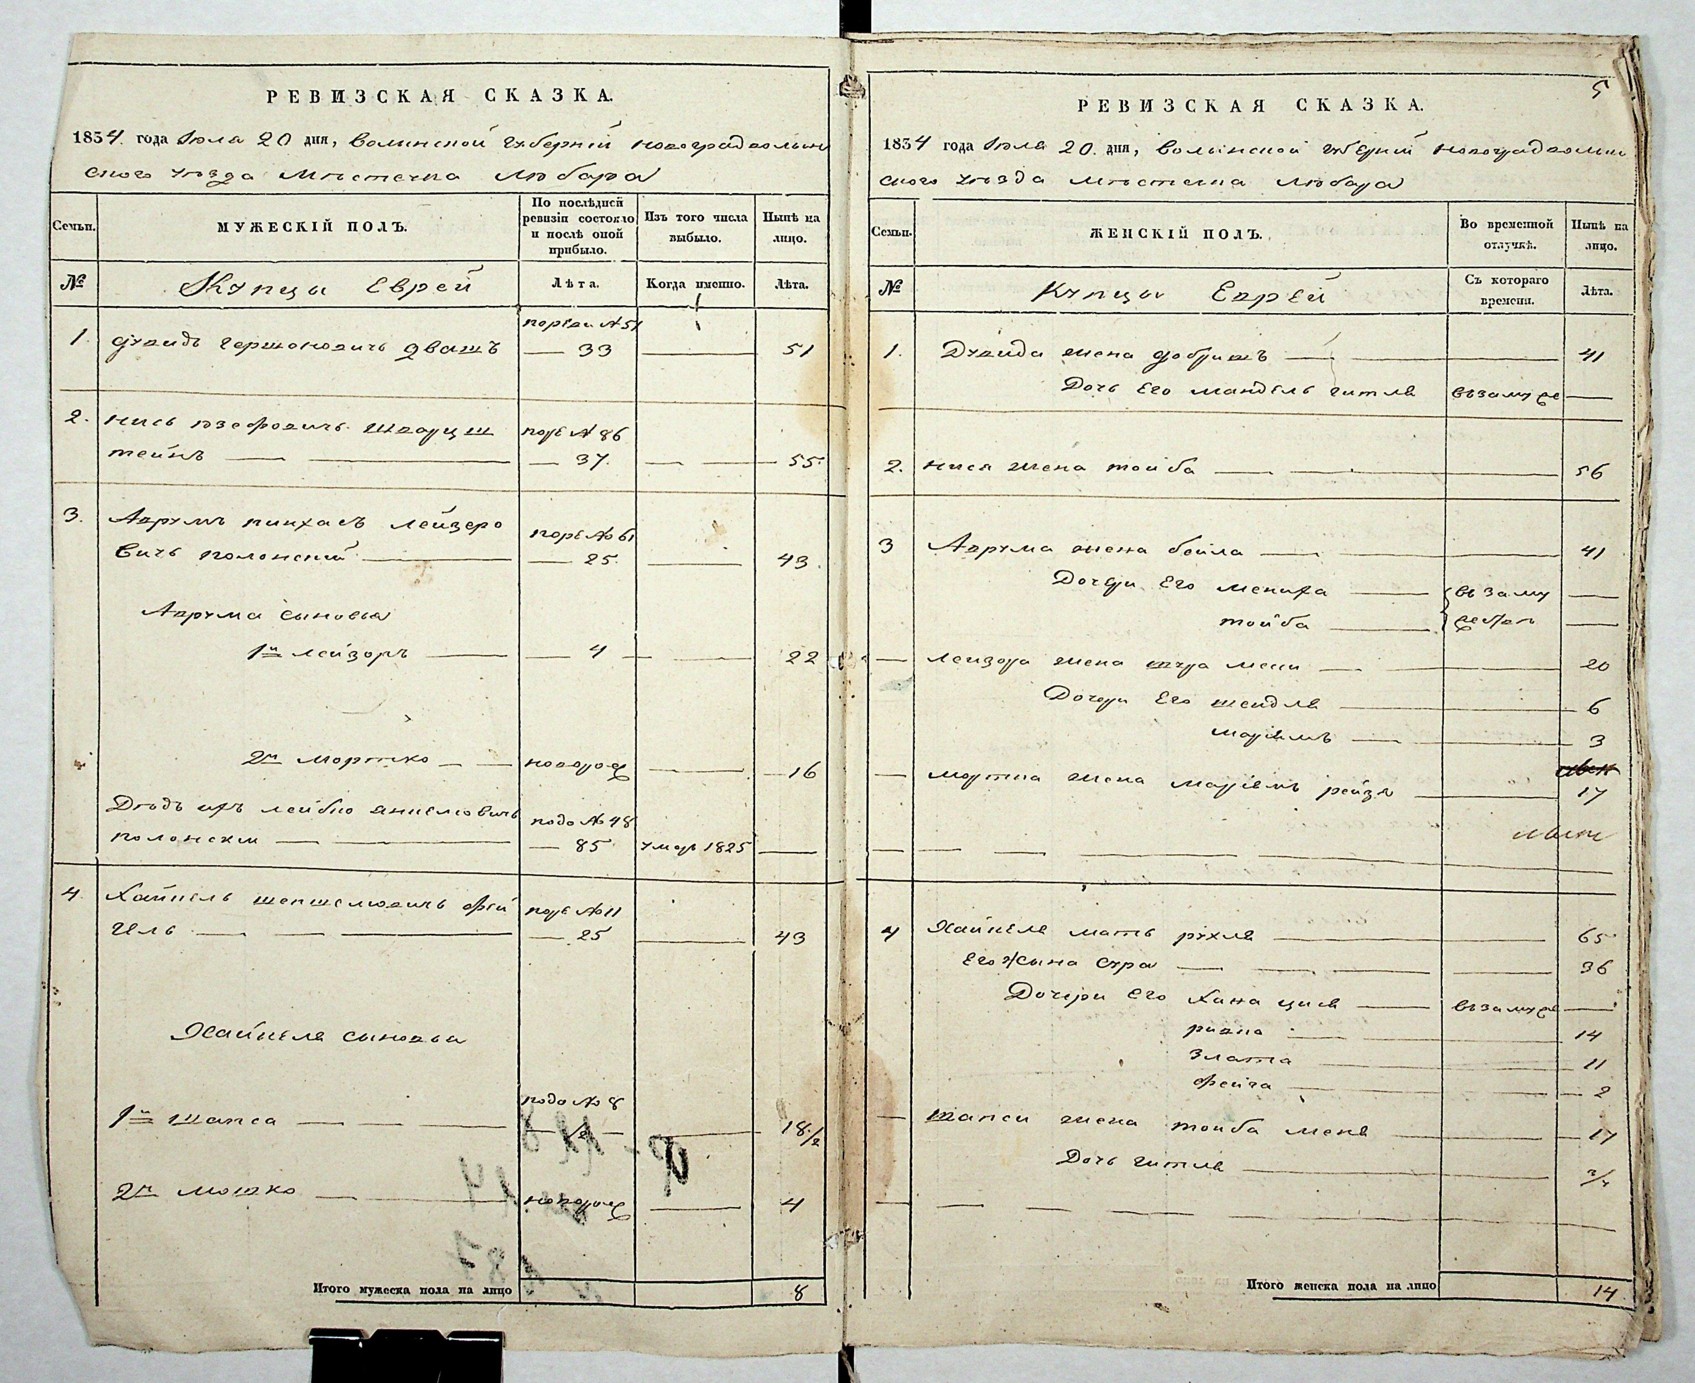 РЕВИЗСКАЯ СКАЗКА.
1854. года Іюля 20 дня, волинской губерній новоградволын
ского уѣзда мѣстечка Любара
Семьи.
МУЖЕСКІЙ ПОЛЪ.
По послѣдней ревизіи состояло и послѣ оной прибыло.
Изъ того числа выбыло.
Нынѣ на лицо.
№
Купцы Еврей
Лѣта.
Когда именно.
Лѣта.
поре №51
1. Дувидъ Гершоновичъ Двашъ 33 51
2. Нись Іозефовичъ Шварцш поре № 86
тейнъ 37. 55.
3. Аврумъ пинхасъ лейзеро поре №61
вичъ полонский 25. 43.
Аврума сыновья
1й лейзоръ 4 22
2й мортко новорож 16
Дѣдъ ихъ лейбио подо №48
полонски 85 умер 1825
4 Хайкель шепшелювичъ фей поре №11
гель 25 43
Хайкеля сыновьи
подо № 8
1й шапса 18 1/2
2й мошко новорож 4
Итого мужеска пола на лицо 8
5
РЕВИЗСКАЯ СКАЗКА.
1854 года Іюля 20. дня, волынской губерній новоградволын
ского уѣзда мѣстечка Любара
Семьи.
ЖЕНСКІЙ ПОЛЪ.
Во временной отлучкѣ.
Нынѣ на лицо.
№
Купцы Еврей
Съ котораго времени.
Лѣта.
1. Дувида жена добришъ 41
Дочь Его мандель гитля въ замуже
2. нися жена тойба 56
3 Аврума жена бейла 41
Дочери Его менихa въ заму
тойба жествѣ
лейзора жена шура меси 20
Дочери Его шейдля 6
маріямъ 3
мортка жена маріемъ рейзя 17
4 Хайкеля мать рухля 65
Его жына сура 36
Дочери Его Хана ципя въ замуже
ривка 14
Злата 11
фейга 2
шапси жена тойба меня 17
Дочь гитля 3/4
Итого женска пола на лицо 14